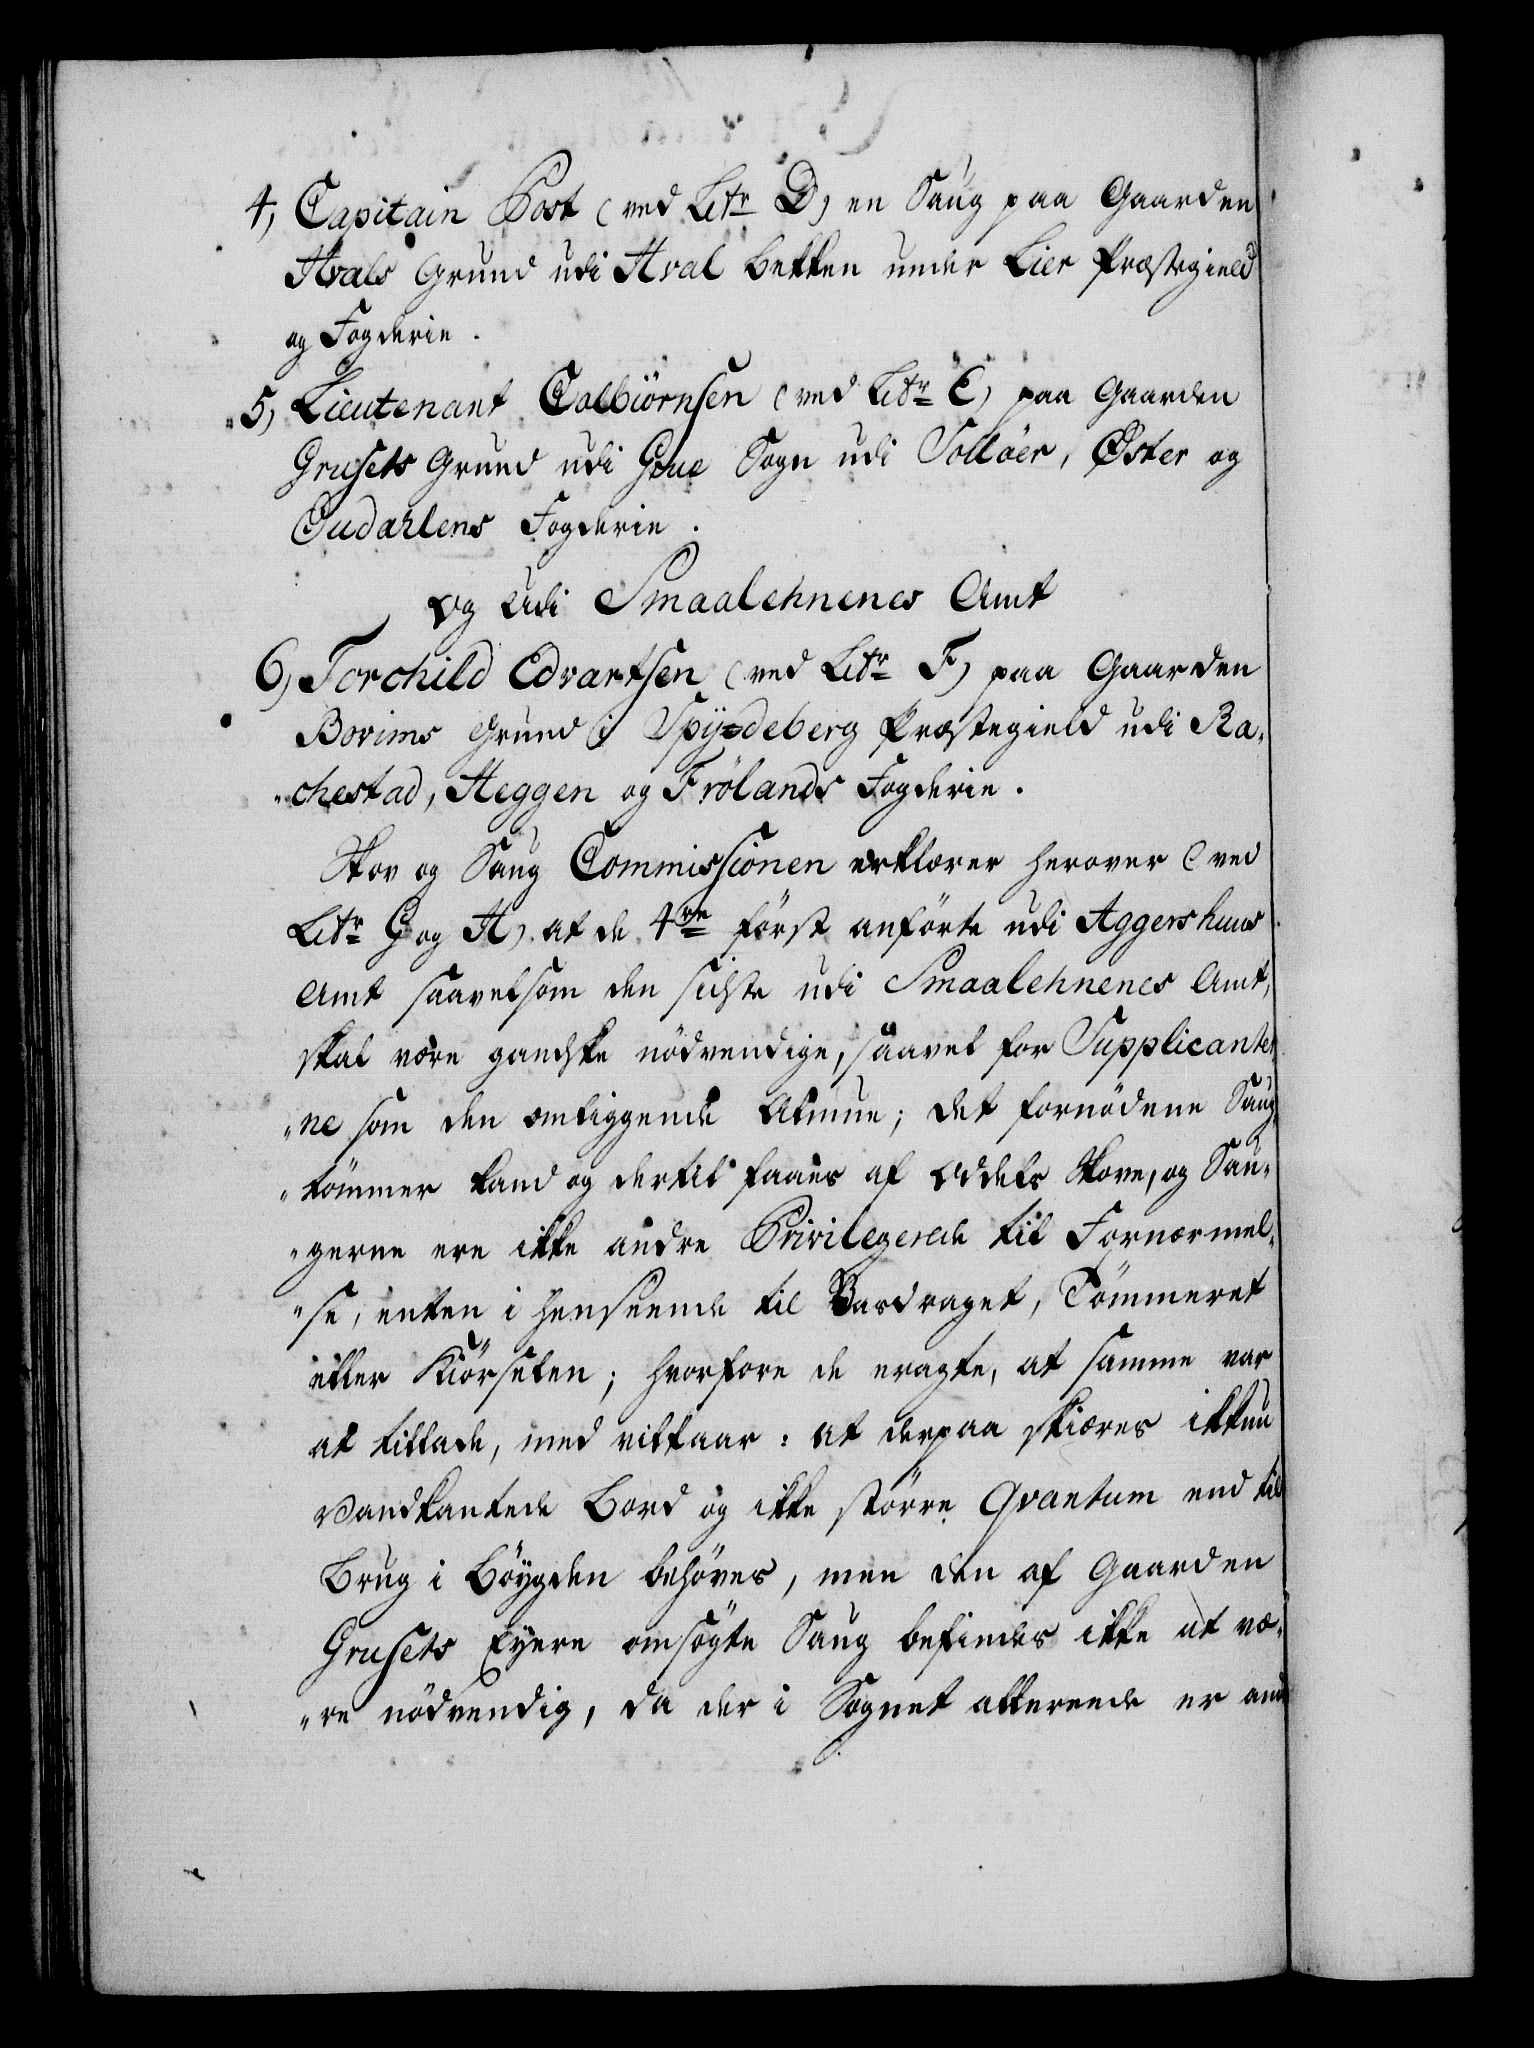 4, Capitain Post (ved Litr D) en Saug paa Gaarden
Hvals Grund udi Hval Bekken under Lier Præstegield
og Fogderie.
5, Lieutenant Colbiörnsen (ved Litr E) paa Gaarden
Grusets Grund udi Grue Sogn udi Solløer, Øster og
Oudahlens Fogderie.
Og udi Smaalehnenes Amt
6, Torchild Edvartsen (ved Litr F) paa Gaarden
Bovims Grund i Spydeberg Præstegield udi Ra-
chestad, Heggen og Frölands Fogderie.
Skov og Saug Commissionen erklærer herover (ved
Litr G og H) at de 4re först anförte udi Aggershuus
Amt saavelsom den sidste udi Smaalehnenes Amt,
skal være gandske nödvendige, saavel for Supplicanter
ne som den omliggende Almue; det fornödene Saug
tömmer kand og dertil faaes af Oddels Skove, og Sau-
gerne ere ikke andre Privilegerede til Fornærmel-
se, enten i henseende til Vasdraget, Tömmeret
eller Kiörselen; hvorfore de eragte, at samme var
at tillade, med vilkaar: at derpaa skiæres ikkun
Vandkantede Bord og ikke större Qvantum end til
Brug i Böygden behöves, men den af Gaarden
Grusets Eyere omsögte Saug befindes ikke at væ-
re nödvendig, da der i Sognet allereede er and